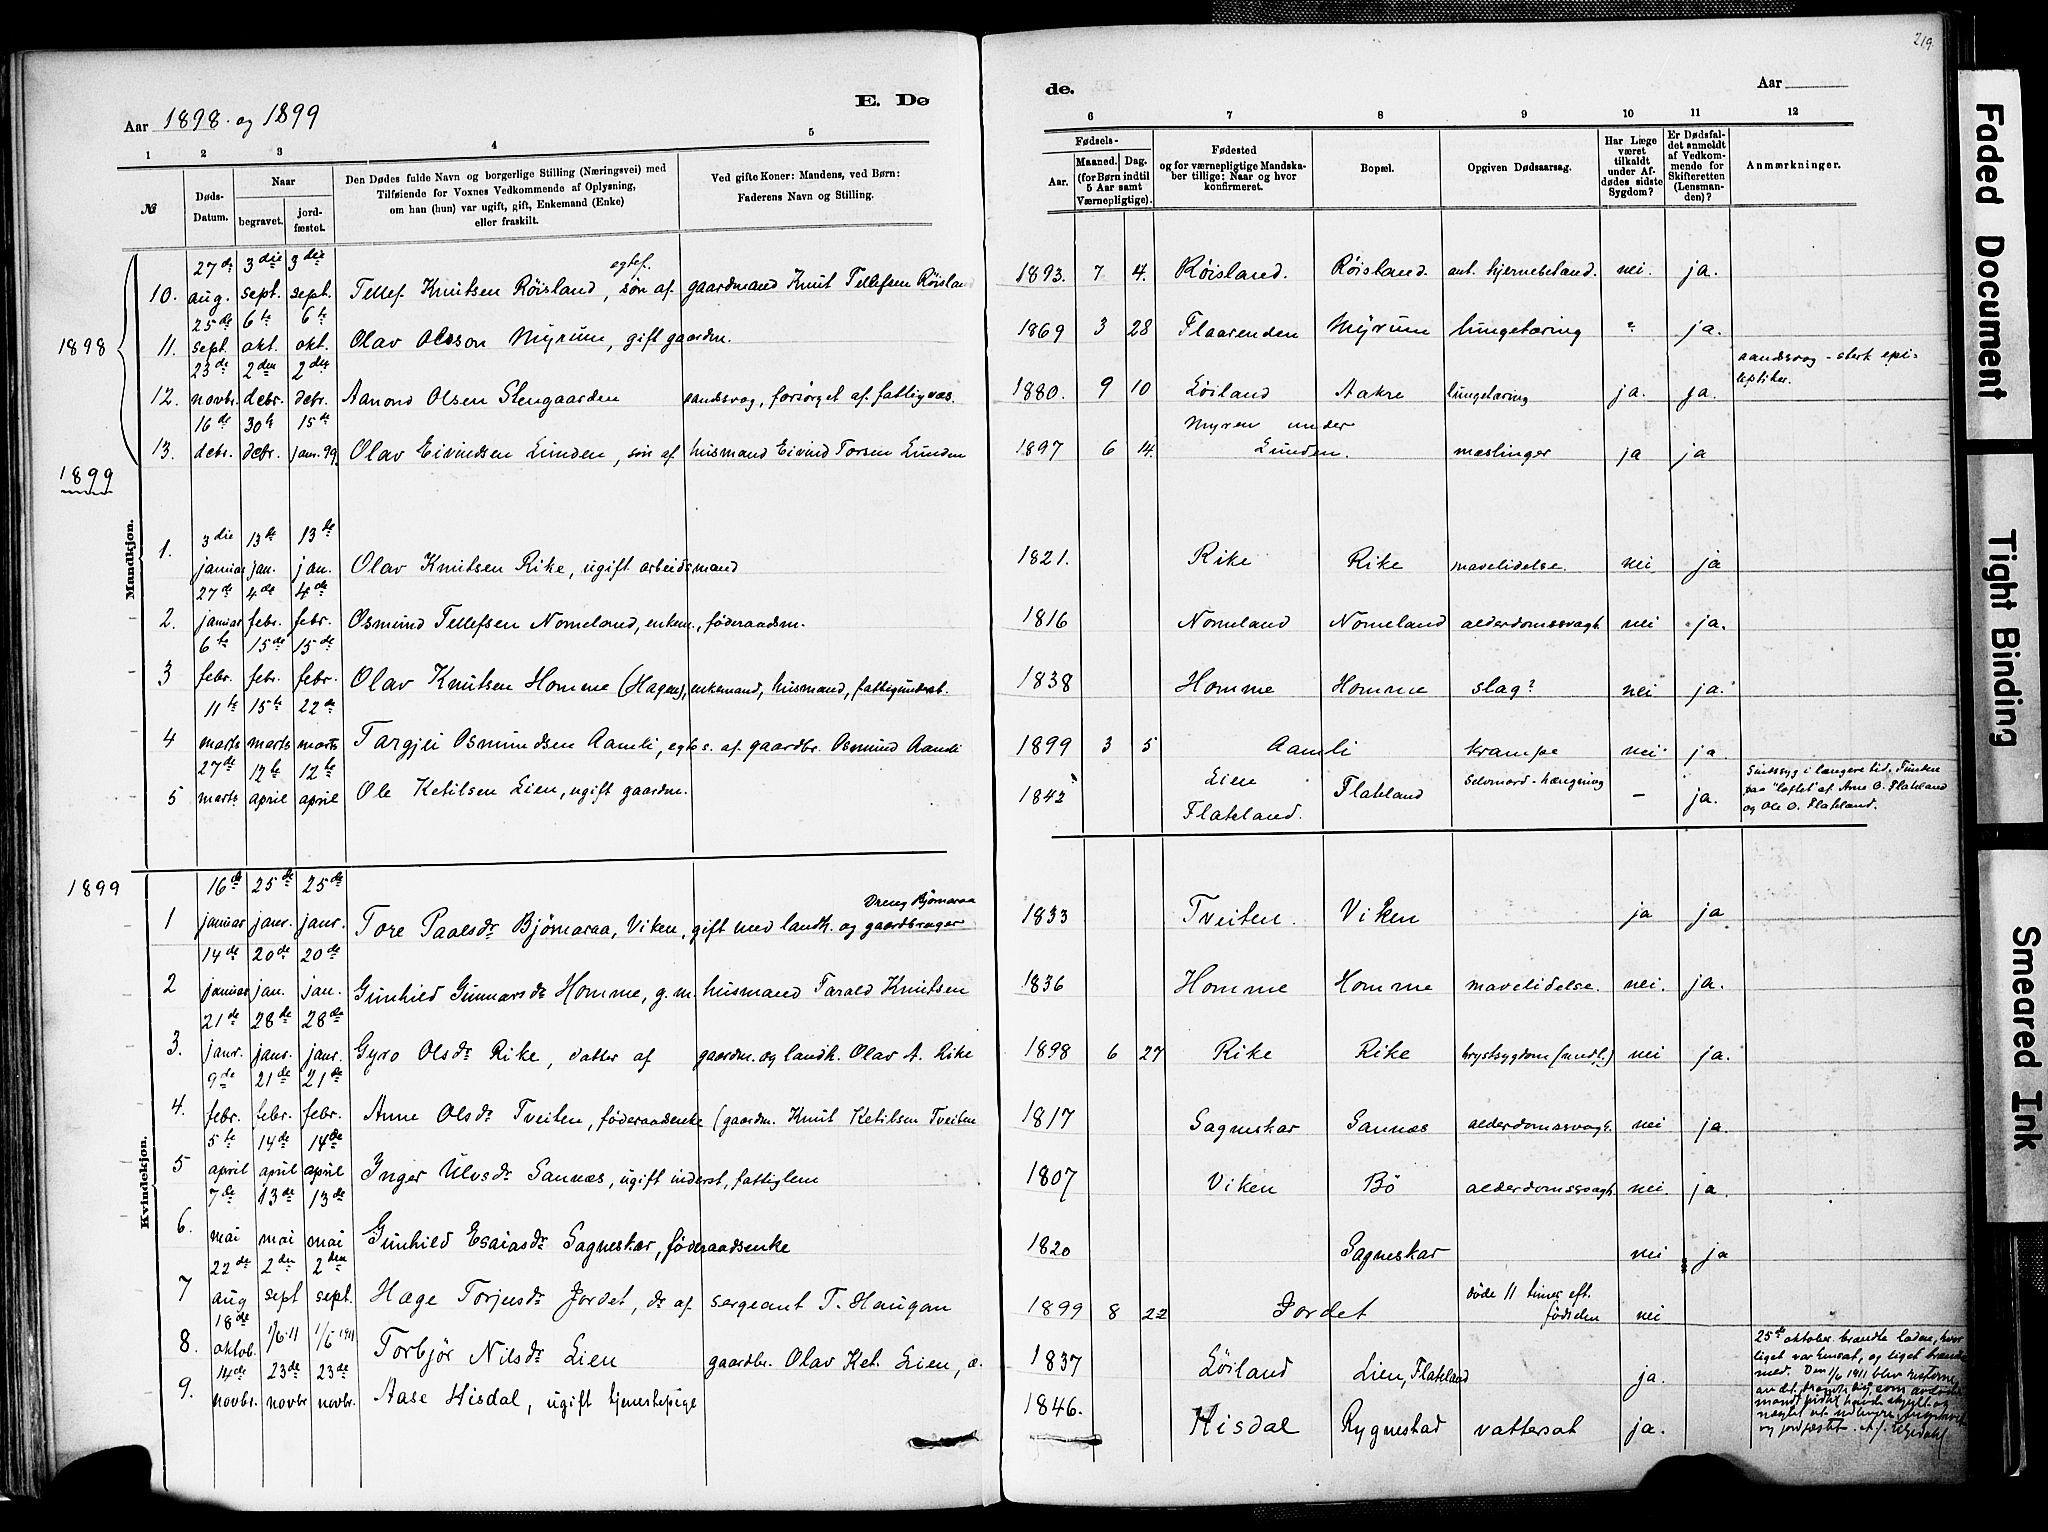 219
Aar 1898 og 1899
E. Dø
de.
Aar
1 2 3 4 5 6 7 8 9 10 11 12
№
Døds-Datum.
Naar
begravet.
jordfæstet.
Den Dødes fulde Navn og borgerlige Stilling (Næringsvei) med
Tilføiende for Voxnes Vedkommende af Oplysning,
om han (hun) var ugift, gift, Enkemand (Enke)
eller fraskilt.
Ved gifte Koner: Mandens, ved Børn:
Faderens Navn og Stilling.
Fødsels-
Aar.
Maaned. Dag.
(for Børn indtil
5 Aar samt
Værnepligtige).
Fødested
og for værnepligtige Mandskaber tillige: Naar og hvor
konfirmeret.
Bopæl.
Opgiven Dødsaarsag.
Har Læge
været
tilkaldt
under Afdødes sidste
Sygdom?
Er Dødsfaldet anmeldt
af Vedkommende for
Skifteretten
(Lensmanden)?
Anmærkninger.
1898
10. 27de aug. 3die sept. 3die sept. Tellef Knutsen Røisland, egtef. søn af gaardmand Knut Tellefsen Røisland 1893. 7 4. Røisland. Røisland. ant. hjernebetænd. nei. ja.
11. 25de sept. 6te okt. 6te okt. Olav Olsson Myrum, gift gaardm. 1869 3 28 Flaarenden Myrum lungetæring " ja.
12. 23de novbr. 2den debr. 2den debr. Aanond Olsen Stengaarden aandsvag, forsørget af fattigvæs. 1880. 9 10 Løiland Aakre lungetæring ja. ja. aandsvag - sterk epileptiker.
13. 16de debr. 30te debr. 15de janr. 99. Olav Eivindsen Lunden, søn af husmand Eivind Torsen Lunden 1897 6 14. Myren under Lunden. mæslinger ja ja
1899
Mandkjøn.
1. 3die januar 13de jan. 13de jan. Olav Knutsen Rike, ugift arbeidsmand 1821. Rike Rike mavelidelse. nei. ja
2. 27de januar 4de febr. 4de febr. Osmund Tellefsen Nomeland, enkem., føderaadsm. 1816 Nomeland Nomeland alderdomssvagh. nei ja.
3 6te febr. 15de febr. 15de febr. Olav Knutsen Homme (Hagen), enkemand, husmand, fattigunderst. 1838 Homme Homme slag? nei ja.
4 11te marts 15te marts 22de marts Targjei Osmundsen Aamli, egte s. af gaardbr. Osmund Aamli 1899 3 5 Aamli krampe nei ja.
5 27de marts 12te april 12te april Ole Ketilsen Lien, ugift gaardm. 1842 Lien Flateland. Flateland Selvmord - hængning — ja. Sindssyg i længere tid. Funden paa "loftet" af Arne O. Flateland og Ole O. Flateland.
1899
Kvindekjøn.
1 16de januar 25de janr. 25de janr. Tore Paalsdr Bjørnaraa, Viken, gift med landh. og gaardbruger Dreng Bjørnaraa 1833 Tveiten. Viken ja ja
2 14de januar 20de jan. 20de jan. Gunhild Gunnarsdr Homme, g. m. husmand Tarald Knutsen 1836 Homme Homme mavelidelse. nei. ja.
3. 21de janr. 28de janr. 28de janr. Gyro Olsdr Rike, datter af gaardm. og landh. Olav A. Rike 1898 6 27 Rike Rike brystsygdom (medf.) nei ja.
4. 9de febr. 21de febr. 21de febr. Anne Olsdr Tveiten, føderaadsenke (gaardm. Knut Ketilsen Tveiten 1817 Sagneskar Sannæs alderdomssvagh. nei ja.
5 5te april 14de april 14de april Inger Ulvsdr Sannæs, ugift inderst, fattiglem 1807 Viken Bø alderdomssvagh. nei. ja.
6. 7de mai 13de mai 13de mai Gunhild Esaiasdr Sagneskar, føderaadsenke 1820 Sagneskar nei ja
7 22de aug 2den sept 2den sept. Hæge Torjusdr Jordet, dr af sergeant T. Haugan 1899 8 22 Jordet døde 11 timer eft. fødselen nei
8. 18de oktob. 1/6.11 1/6 1911 Torbjør Nilsdr Lien gaardbr. Olav Ket. Lien, æ. 1837 Løiland Lien, Flateland ja. 25de oktober brændte laden, hvor liget var hensat, og liget brændte med. Den 1/6 1911 blev resterne
9. 14de novbr. 23de novbr 23de novbr. Aase Hisdal, ugift tjenestepige 1846. Hisdal Rygnestad vattersot ja.
og jordfæstet.
Faded Document
Tight Binding
Smeared Ink